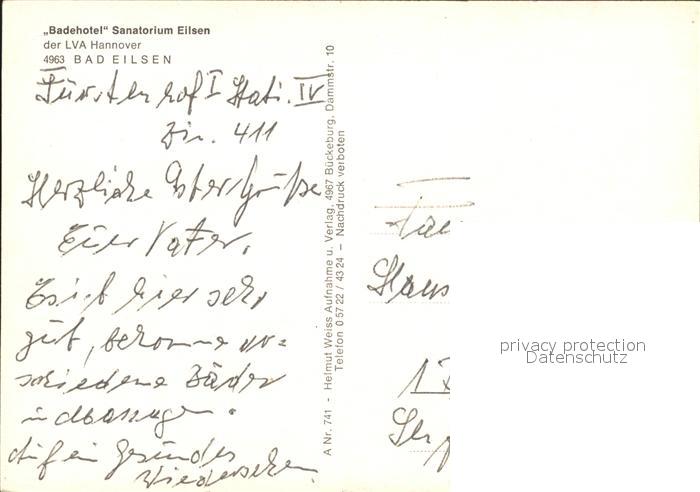 „Badehotel“ Sanatorium Eilsen
der LVA Hannover
4963 BAD EILSEN
Fürstenhof I Stati. IV
Zi. 411
Herzliche Ostergrüße
Euer Vater.
Es ist hier sehr
gut, bekomme ver=
schiedene Bäder
und Massagen.
Auf ein Gesundes
Wiedersehen
A Nr. 741 - Helmut Weiss Aufnahme u. Verlag, 4967 Bückeburg, Dammstr. 10
Telefon 0 57 22 / 43 24 — Nachdruck verboten
Hans
privacy protection
Datenschutz